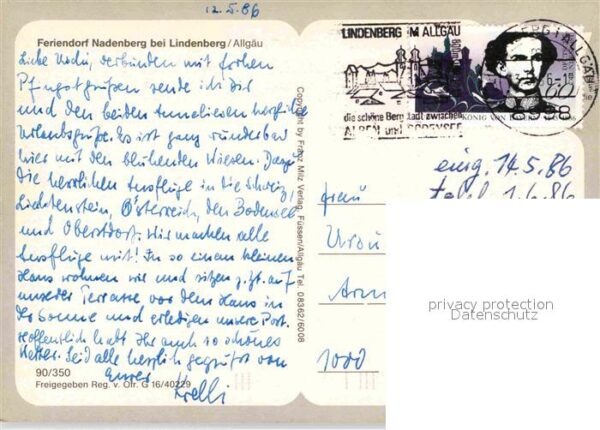 12.5.86
Feriendorf Nadenberg bei Lindenberg/Allgäu
Liebe verbunden mit frohen
Pfingstgrüßen sende ich Dir
und den beiden Anneliesen herzliche
Urlaubsgrüße. Es ist ganz wunderbar
hier mit den blühenden Wiesen. Dazu
die herrlichen Ausflüge in die Schweiz,
Liechtenstein, Österreich, den Bodensee
und Oberstdorf. Wir machen alle
Ausflüge mit! In so einem kleinen
Haus wohnen wir und sitzen z.Zt. auf
unserer Terrasse vor dem Haus in
der Sonne und erledigen unsere Post.
Hoffentlich habt Ihr auch so schönes
Wetter. Seid alle herzlich gegrüßt von
Eurer
90/350
Freigegeben Reg. v. Ofr. G 16/40229
Copyright by Franz Milz Verlag, Füssen/Allgäu Tel. 08362/6008
LINDENBERG IM ALLGÄU
die schöne Bergstadt zwischen
ALPEN und BODENSEE
KÖNIG VON BAYERN
eing. 14.5.86
1.6.86
Frau
1000
privacy protection
Datenschutz